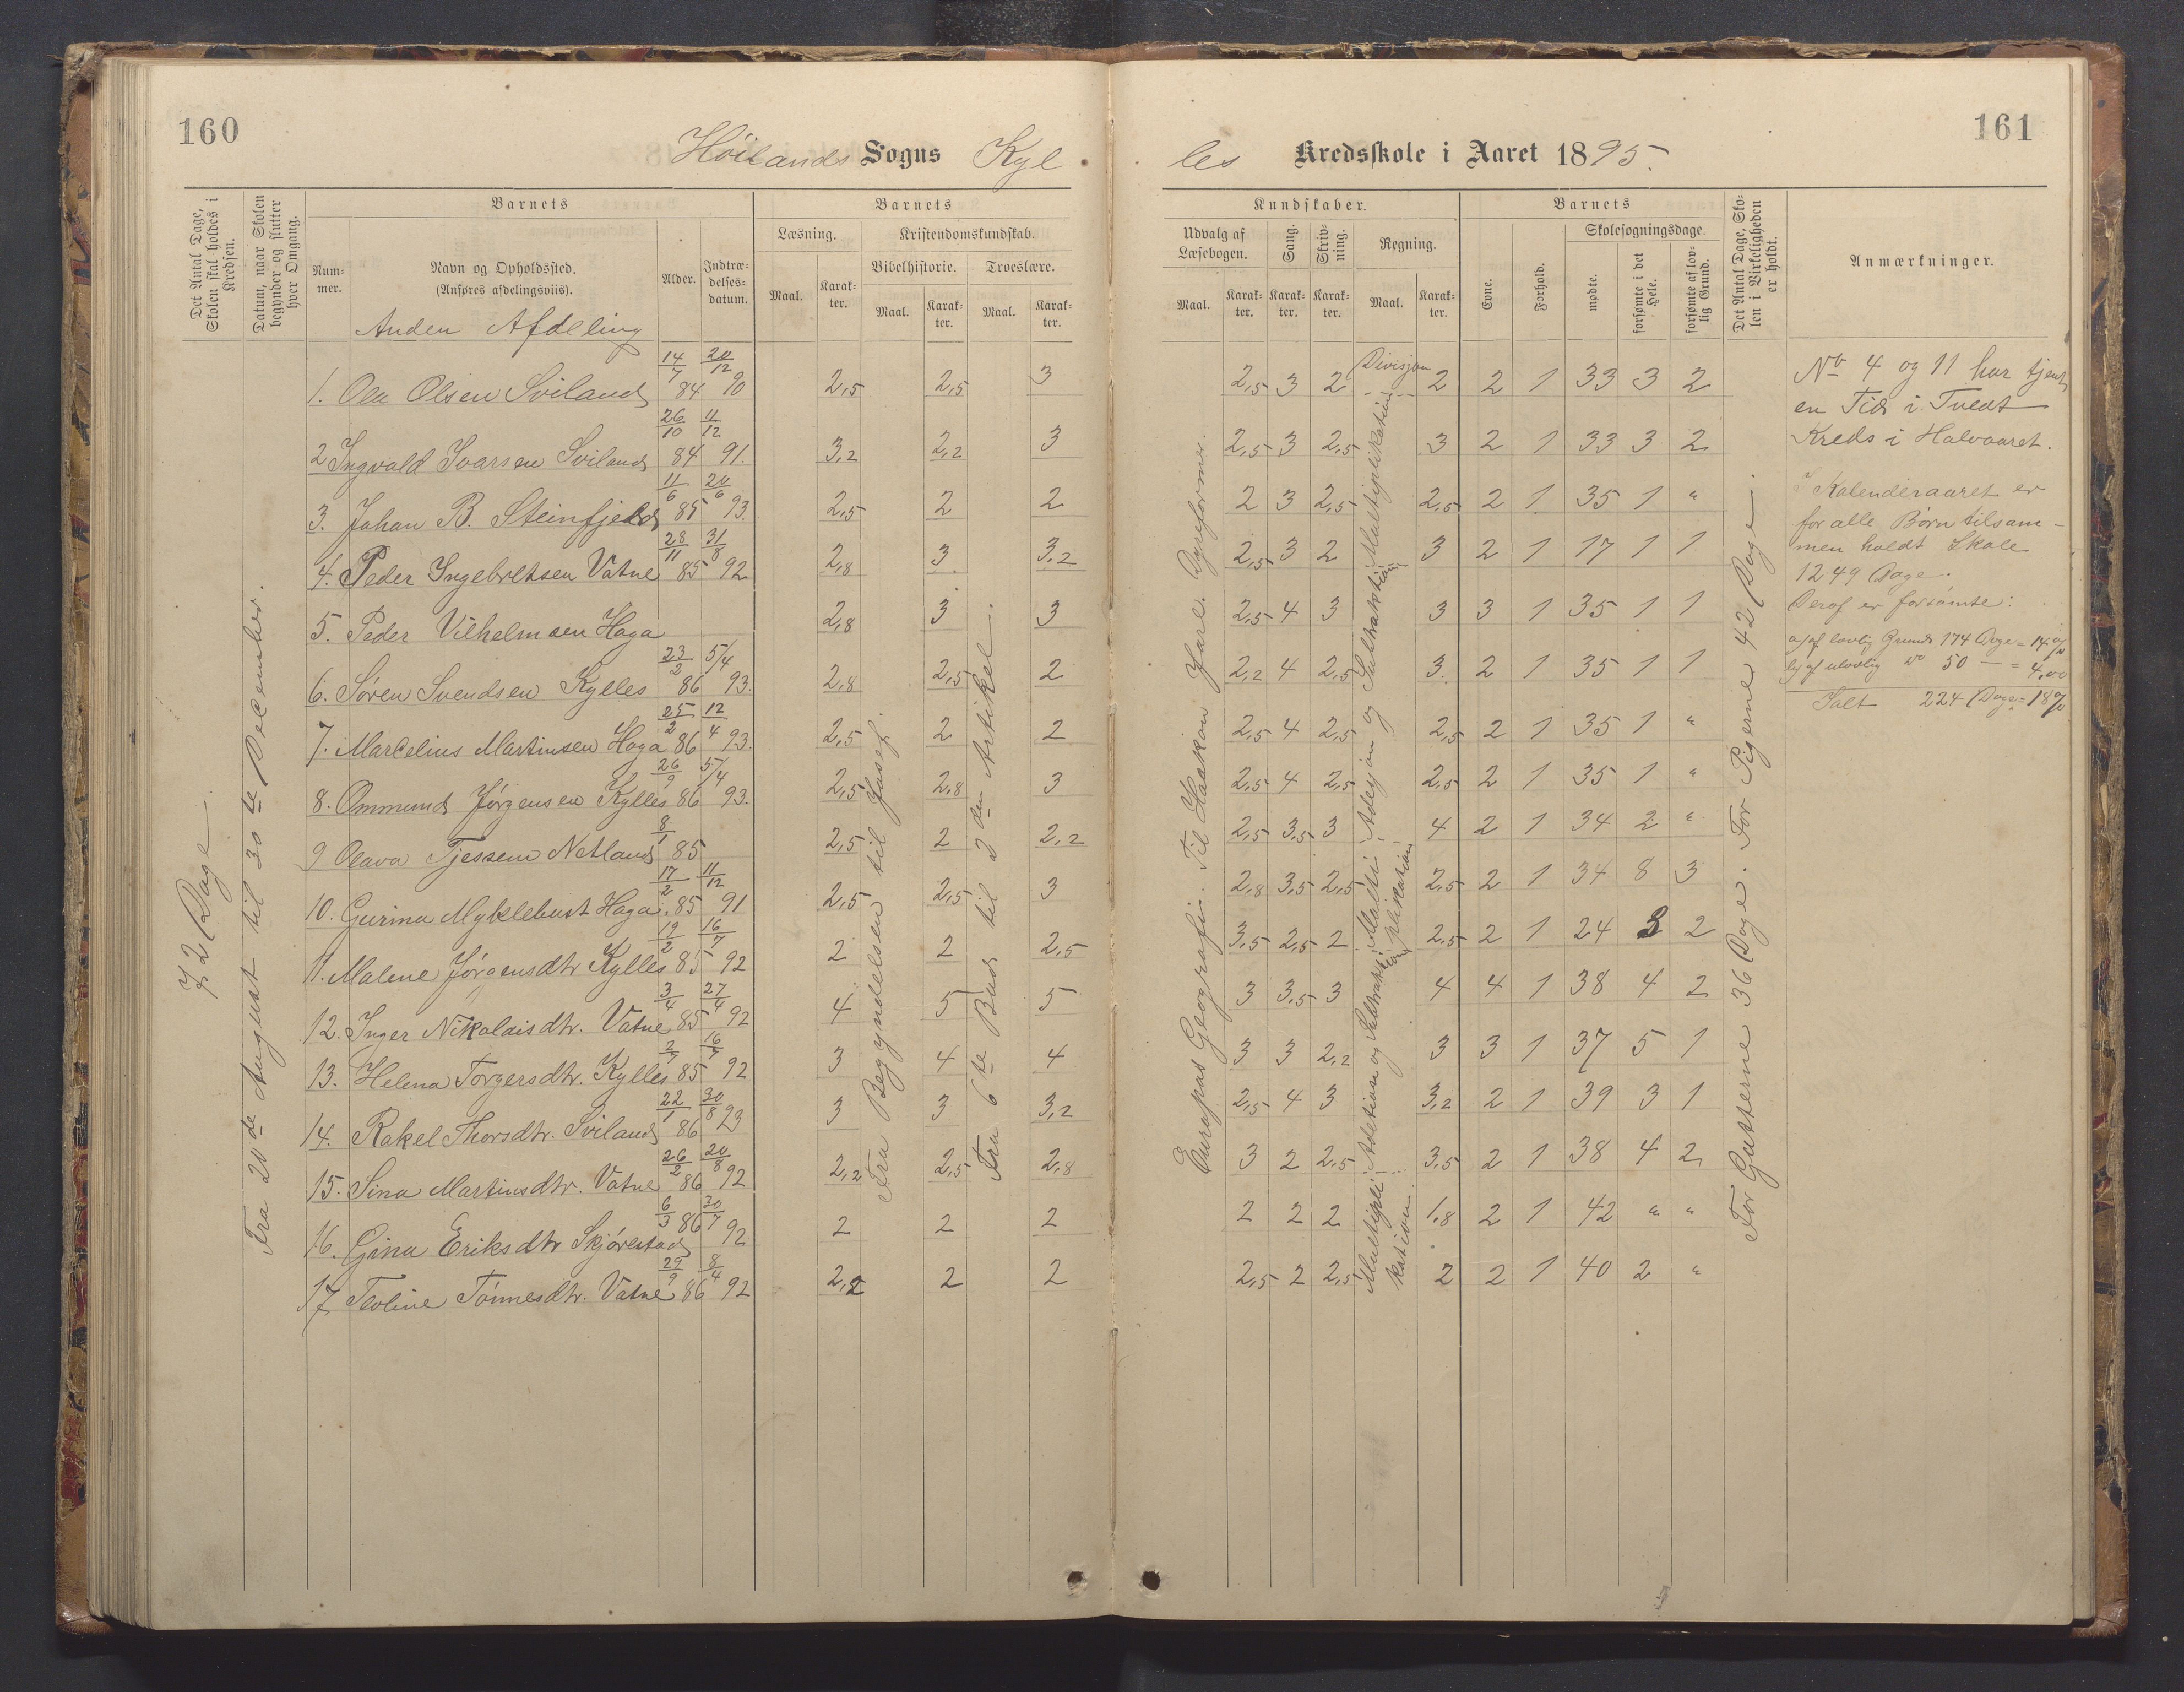 160
161
Höilands Sogns Kyl
les Kredsskole i Aaret 1895.
Det Antal Dage, Skolen skal holdes i Kredsen.
Datum, naar Skolen begynder og slutter hver Omgang.
Barnets
Nummer.
Navn og Opholdssted.
(Anføres afdelingsviis).
Alder.
Indtrædelsesdatum.
Barnets
Læsning.
Maal.
Karakter.
Kristendomskundskab.
Bibelhistorie.
Maal.
Karakter.
Troeslære.
Maal.
Karakter.
Kundskaber.
Udvalg af Læsebogen.
Maal.
Karakter.
Sang.
Karakter.
Skrivning.
Karakter.
Regning.
Maal.
Karakter.
Barnets
Evne.
Forhold.
Skolesøgningsdage.
mødte.
forsømte i det Hele.
forsømte af lovlig Grund.
Det Antal Dage, Skolen i Virkeligheden er holdt.
Anmærkninger.
Anden Afdeling
72 Dage
Fra 20de August til 30te December.
1. Ola Olsen Sviland 14/7 84 20/12 90 2,5 2,5 3 2,5 3 2 Divisjon 2 2 1 33 3 2
2 Ingvald Ivarsen Sviland 26/10 84 11/12 91. 3,2 2,2 3 2,5 3 2,5 3 2 1 33 3 2
3. Johan B. Steinfjeld 11/6 85 20/6 93. 2,5 2 2 2 3 2,5 2,5 2 1 35 1 "
4. Peder Ingebretsen Vatne 28/11 85 31/8 92 2,8 3 3,2 2,5 3 2 3 2 1 17 1 1
5. Peder Vilhelmsen Haga 2,8 3 3 2,5 4 3 3 3 1 35 1 1
6. Søren Svendsen Kylles 23/2 86 5/4 93. 2,8 2,5 2 2,2 4 2,5 3. 2 1 35 1 1
7. Marcelius Martinsen Haga 25/2 86 12/4 93. 2,5 2 2 2,5 4 2,5 2,5 2 1 35 1 "
8. Ommund Jørgensen Kylles 26/9 86 5/4 93. 2,5 2,8 3 2,5 4 2,5 2,5 2 1 35 1 "
9 Olava Tjessem Netland 8/1 85 2,5 2 2,2 2,5 3,5 3 4 2 1 34 2 "
10. Gurina Myklebust Haga 17/2 85 11/12 91 2,5 2,5 3 2,8 3,5 2,5 2,5 2 1 34 8 3
11. Malene Jørgensdtr Kylles 19/2 85 16/7 92 2 2 2,5 3,5 2,5 2 2,5 2 1 24 3 2
12. Inger Nikolaisdtr. Vatne 3/4 85 27/4 92 4 5 5 3 3,5 3 4 4 1 38 4 2
13. Helena Torgersdtr. Kylles 2/7 85 16/7 92 3 4 4 3 3 2,2 3 3 1 37 5 1
14. Rakel Thorsdtr. Sviland 22/1 86 30/8 93 3 3 3,2 2,5 4 3 3,2 2 1 39 3 1
15. Sina Martinsdtr. Vatne 26/2 86 20/8 92 2,2 2,5 2,8 3 2 2,5 3,5 2 1 38 4 2
16. Gina Eriksdtr Skjørestad 6/3 86 30/7 92 2 2 2 2 2 2 1,8 2 1 42 " "
17. Teoline Tønnesdtr. Vatne 29/9 86 8/4 92 2,2 2 2 2,5 2 2,5 2 2 1 40 2 "
Fra Begyndelsen til Josef.
Fra 6te Bud til 2den Artikel.
Europas Geografi. Til Haakon Jarl. Dyreformer.
Multiplikation
Addisjon og Subtraktion
Multiplikation
Addition og Subtraktion
Multiplikation.
For Gutterne 36 Dage. For Pigerne 42 Dage.
No 4 og 11 har tjent
en Tid i Tvedt
Kreds i Halvaaret.
I Kalenderaaret er
for alle Børn tilsam-
men holdt Skole
1249 Dage.
Deraf er forsømte:
a) af lovlig Grund 174 Dage = 14 %
b) af ulovlig do 50 — = 4,00
Ialt 224 Dage = 18 %